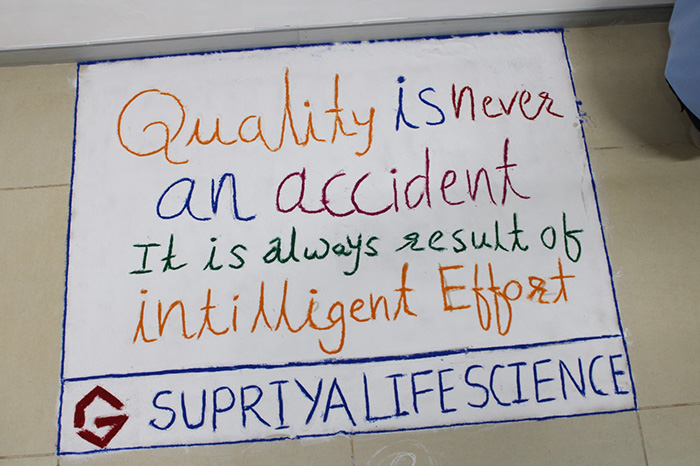 Quality is never
an accident
It is always result of
intilligent Effort
SUPRIYA LIFESCIENCE